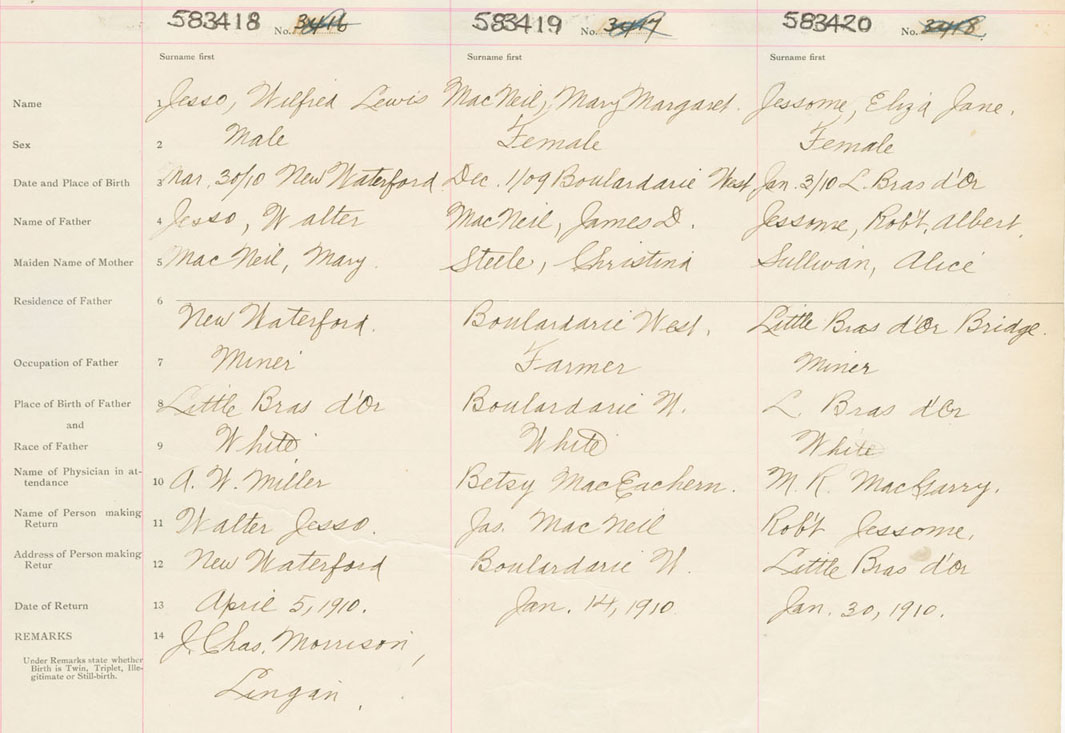 583418 No. 3416 583419 No. 3417 583420 No. 3418.
Surname first Surname first Surname first
Name 1 Jesso, Wilfred Lewis MacNeil, Mary Margaret. Jessome, Eliza Jane.
Sex 2 Male Female Female
Date and Place of Birth 3 Mar. 30/10 New Waterford Dec. 1/09 Boulardarie West, Jan. 3/10 L. Bras d'Or
Name of Father 4 Jesso, Walter MacNeil, James D. Jessome, Rob't Albert.
Maiden Name of Mother 5 MacNeil, Mary. Steele, Christina Sullivan, Alice
Residence of Father 6 New Waterford. Boulardarie West. Little Bras d'Or Bridge.
Occupation of Father 7 Miner Farmer Miner
Place of Birth of Father 8 Little Bras d'Or Boulardarie W. L. Bras d'Or
and
Race of Father 9 White White White
Name of Physician in at-
tendance 10 A. W. Miller Betsy MacEachern. M. R. MacGarry.
Name of Person making
Return 11 Walter Jesso. Jas. MacNeil Rob't Jessome.
Address of Person making
Retur 12 New Waterford Boulardarie W. Little Bras d'Or
Date of Return 13 April 5, 1910. Jan. 14, 1910 Jan. 30, 1910.
REMARKS 14 J. Chas. Morrison,
Under Remarks state whether
Birth is Twin, Triplet, Ille-
gitimate or Still-birth.
Lingan.